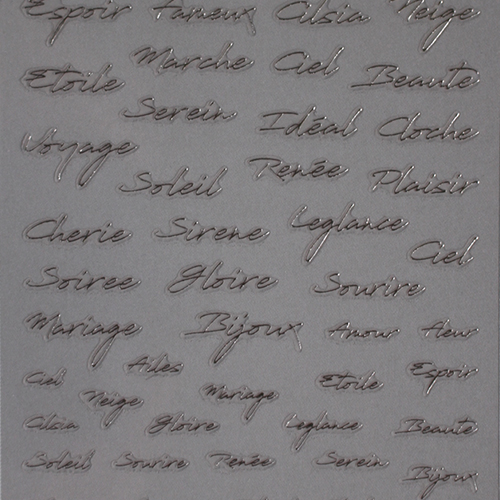 Espoir Fameux Cilsia Neige
Marche Ciel
Etoile Beaute
Serein Idéal Cloche
Voyage
Soleil Renée Plaisir
Cherie Sirene Leglance
Ciel
Soiree Gloire Sourire
Mariage Bijoux Amour fleur
Ciel Ailes Etoile Espoir
Neige Mariage
Cilsia Gloire Leglance Beaute
Soleil Sourire Renée Serein
Bijoux